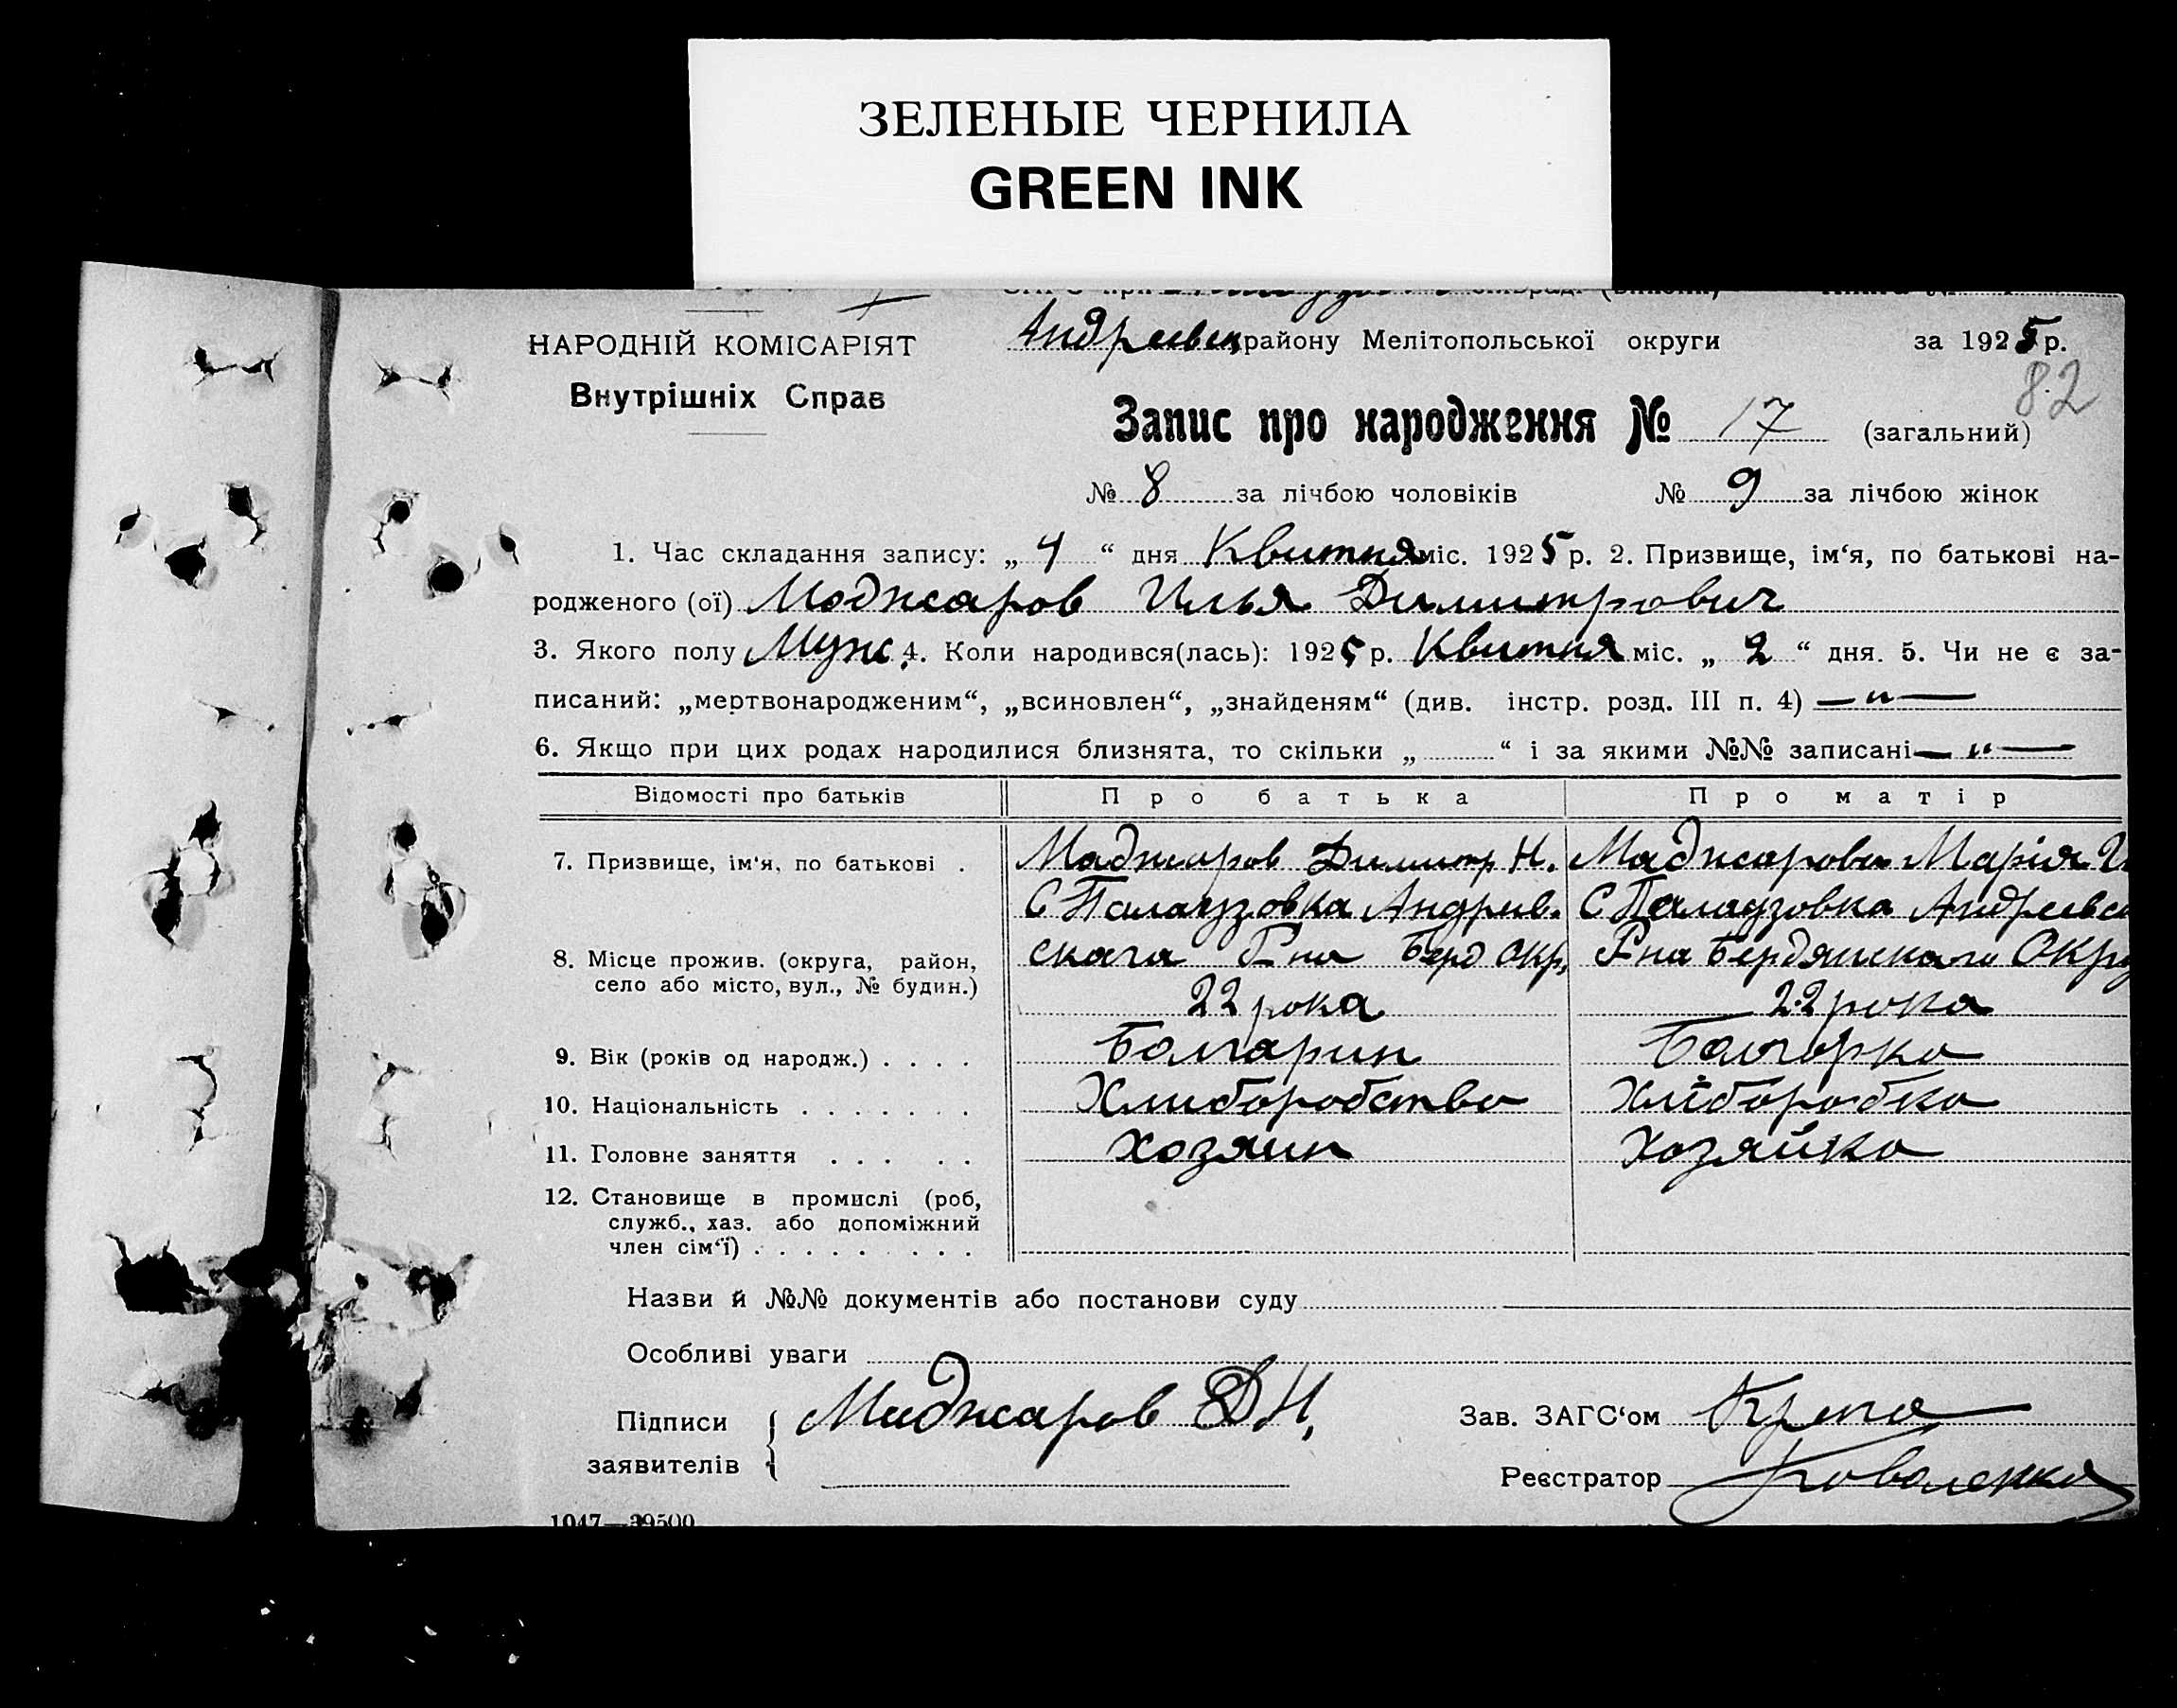 ЗЕЛЕНЫЕ ЧЕРНИЛА
GREEN INK
НАРОДНІЙ КОМІСАРІЯТ
Внутрішніх Справ
Андреевск району Мелітопольської округи за 1925 р.
82
Запис про народження № 17 (загальний)
№ 8 за лічбою чоловіків № 9 за лічбою жінок
1. Час складання запису: „ 4 “ дня Квитня міс. 1925 р. 2. Призвище, ім‘я, по батькові на-
родженого (ої) Моджаров Илья Димитрович
3. Якого полу Муж. 4. Коли народився(лась): 1925 р. Квитня міс. „ 2 “ дня. 5. Чи не є за-
писаний: „мертвонародженим“, „всиновлен“, „знайденям“ (див. інстр. розд. III п. 4) — „ —
6. Якщо при цих родах народилися близнята, то скільки „ “ і за якими №№ записані — „ —
Відомості про батьків Про батька Про матір
7. Призвище, ім‘я, по батькові . Маджаров Димитр Н. Маджарова Марія
С Палаузовка Андрив. С Палаузовка Андреевск
8. Місце прожив. (округа, район, скага Р-на Берд окр, Р-на Бердянскаго Окру
село або місто, вул., № будин.)
22 рока 22 рока
9. Вік (років од народж.) . . . . Болгарин Болгорка
10. Національність . . . . . . . Хлиборобство Хлїборобка
11. Головне заняття . . . . . Хозяин Хозяйка
12. Становище в промислі (роб,
служб., хаз. або допоміжний
член сім‘ї) . . . . . . . . .
Назви й №№ документів або постанови суду
Особливі уваги
Підписи Маджаров Д Н, Зав. ЗАГС‘ом
заявителів
Реєстратор Коваленко
1047—39500